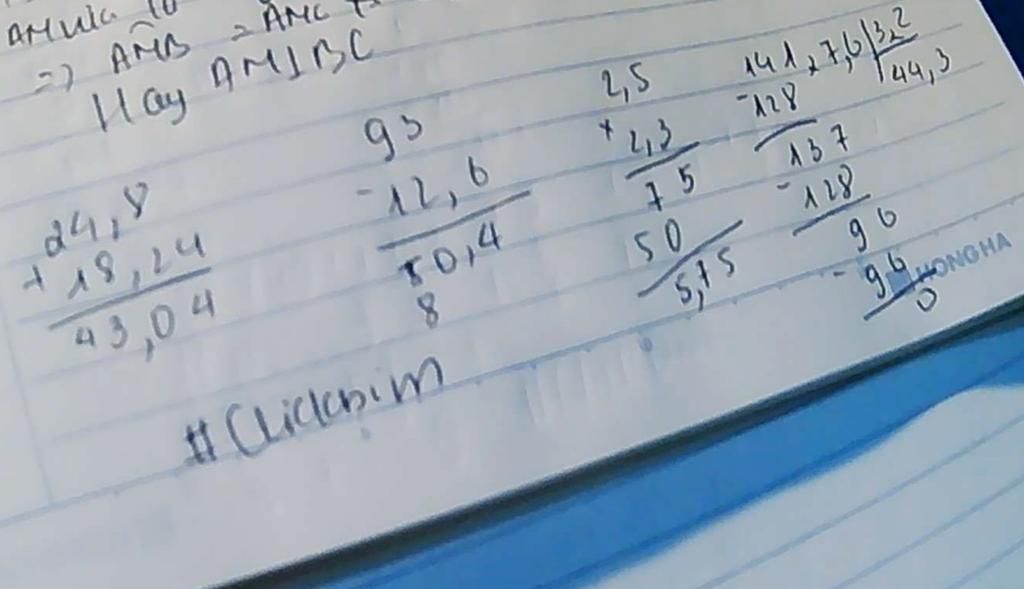 => AMB = AMC
Hay AM⊥BC
24,8
+ 18,24
43,04
93
- 12,6
80,4
8
2,5
× 2,3
75
50
5,75
141,7,6 3,2
- 128 44,3
137
- 128
96
- 96
0
HONG HA
#Clickbim